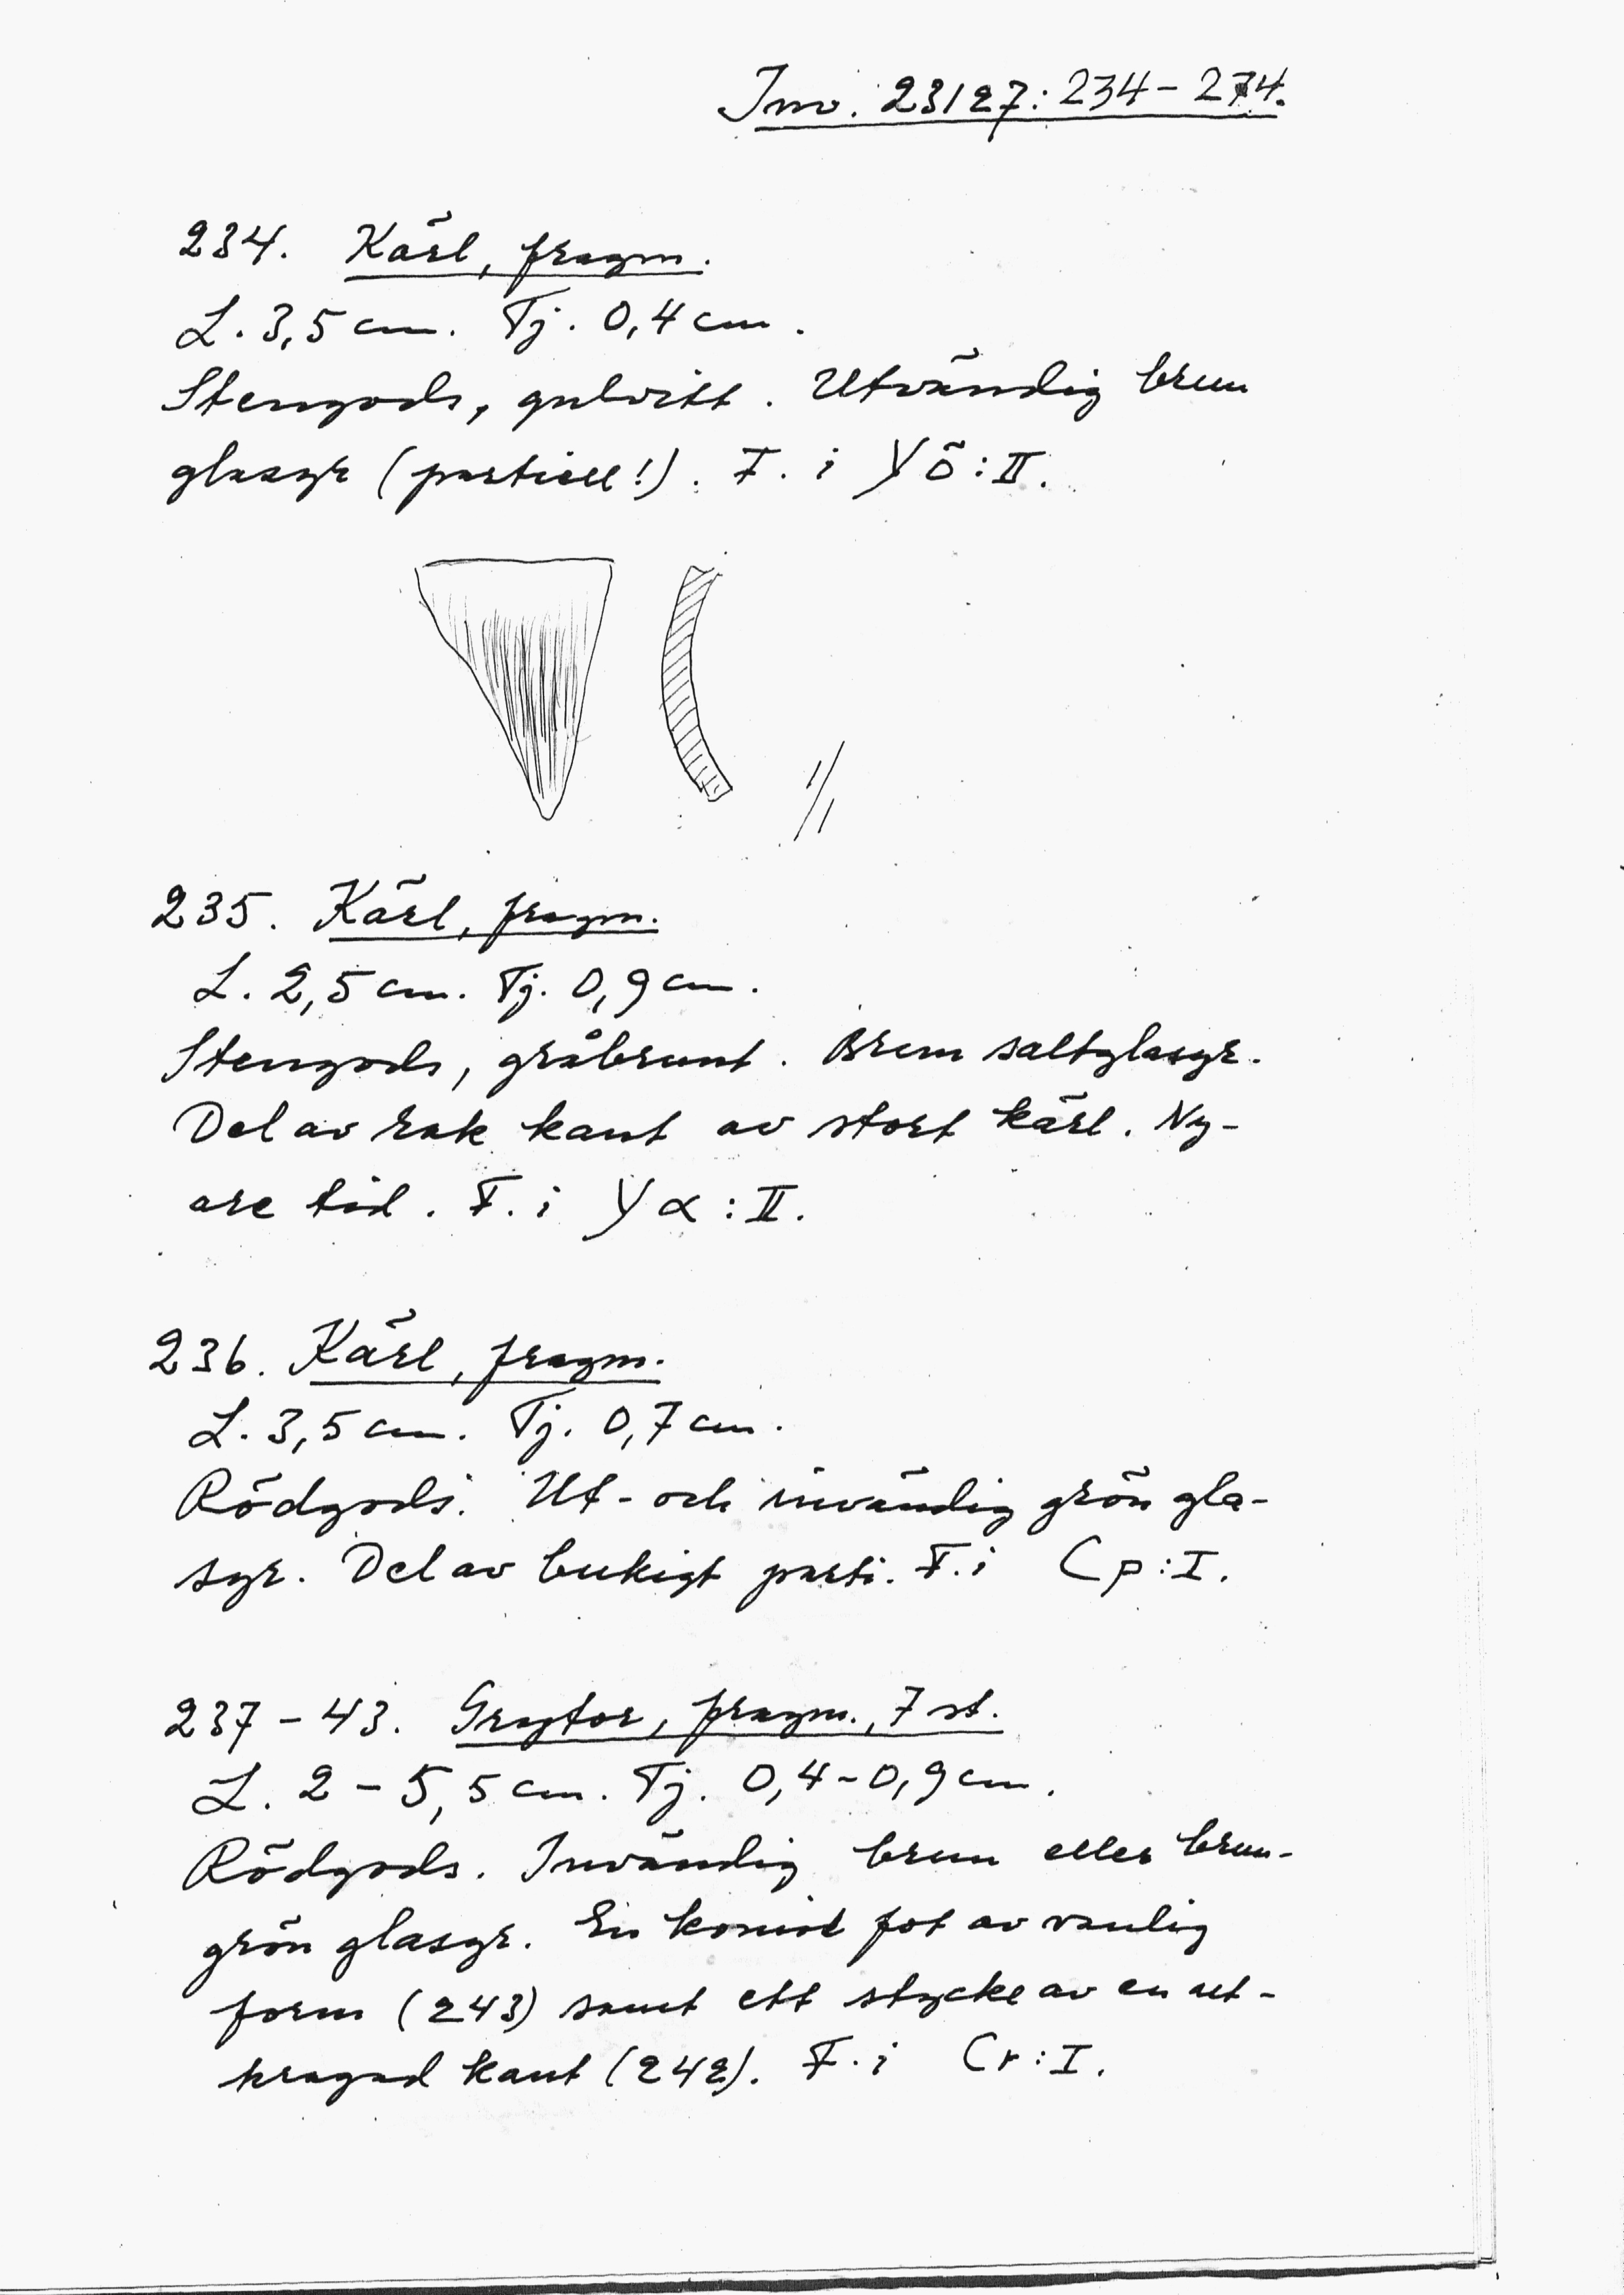 Inv. 23127: 234-274.
234. Kärl, fragm.
L. 3,5 cm. Tj. 0,4 cm.
Stengods, gulvitt. Utvändig brun
glasyr (partiell!). F. i Y ö: II.
1/1
235. Kärl, fragm.
L. 2,5 cm. Tj. 0,9 cm.
Stengods, gråbrunt. Brun saltglasyr.
Del av rak kant av stort kärl. Ny-
are tid. F. i Y α: II.
236. Kärl, fragm.
L. 3,5 cm. Tj. 0,7 cm.
Rödgods. Ut- och invändig grön gla-
syr. Del av bukigt parti. F. i C p: I.
237-43. Grytor, fragm., 7 st.
L. 2-5,5 cm. Tj. 0,4-0,9 cm.
Rödgods. Invändig brun eller brun-
grön glasyr. En konisk fot av vanlig
form (243) samt ett stycke av en ut-
kragad kant (242). F. i C r: I.